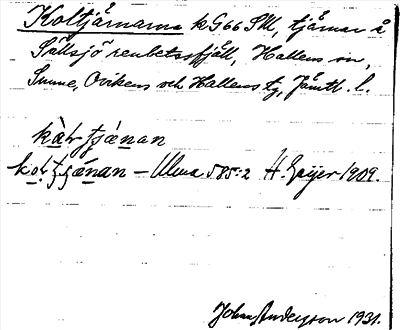 Koltjärnarna k G66 SM, tjärnar å
Sällsjö renbetesfjäll, Hallens sn,
Sunne, Ovikens och Hallens tg, Jämtl. l.
kàɫtjǽnan
koɫtjǽnan – Ulma 585:2 H. Geijer 1909.
Johan Anderson 1931.